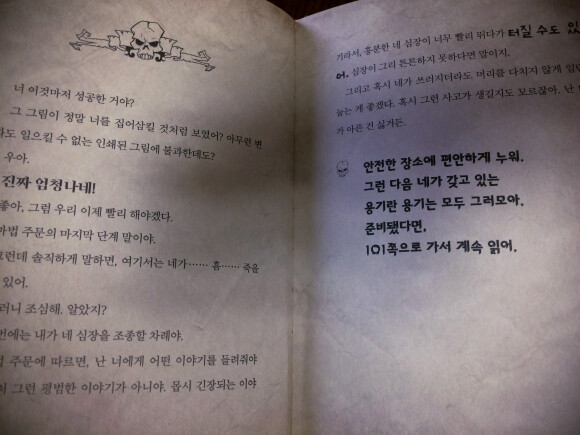 너 이것마저 성공한 거야?
그 그림이 정말 너를 집어삼킬 것처럼 보였어? 아무런 변
도 일으킬 수 없는 인쇄된 그림에 불과한데도?
우아.
진짜 엄청나네!
좋아, 그럼 우리 이제 빨리 해야겠다.
마법 주문의 마지막 단계 말이야.
그런데 솔직하게 말하면, 여기서는 네가…… 흠…… 죽을
있어.
러니 조심해. 알았지?
번에는 내가 네 심장을 조종할 차례야.
주문에 따르면, 난 너에게 어떤 이야기를 들려줘야
그런 평범한 이야기가 아니야. 몹시 긴장되는 이야
기라서, 흥분한 네 심장이 너무 빨리 뛰다가 터질 수도 있
어. 심장이 그리 튼튼하지 못하다면 말이지.
그리고 혹시 네가 쓰러지더라도 머리를 다치지 않게
눕는 게 좋겠다. 혹시 그런 사고가 생길지도 모르잖아. 난
가 아픈 건 싫거든.
안전한 장소에 편안하게 누워.
그런 다음 네가 갖고 있는
용기란 용기는 모두 그러모아.
준비됐다면,
101쪽으로 가서 계속 읽어.